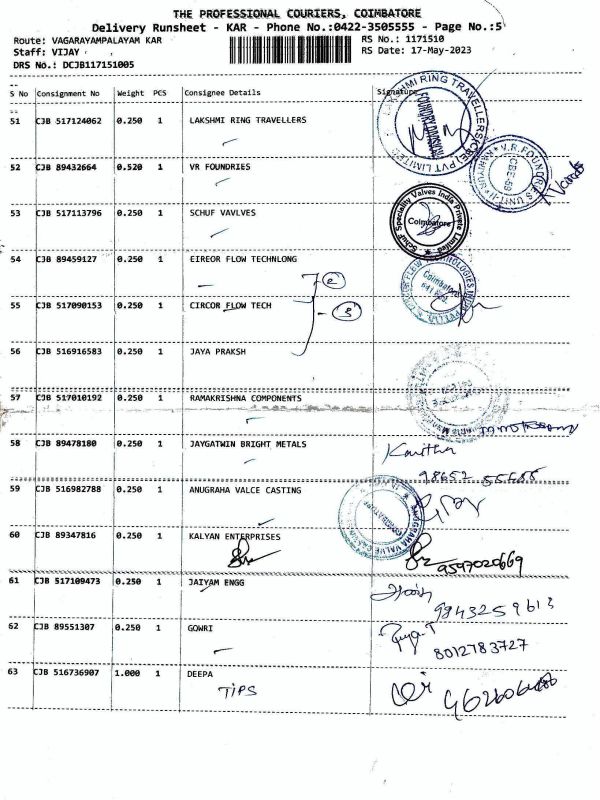 THE PROFESSIONAL COURIERS, COIMBATORE
Delivery Runsheet - KAR - Phone No.:0422-3505555 - Page No.:5
Route: VAGARAYAMPALAYAM KAR
RS No.: 1171510
Staff: VIJAY
RS Date: 17-May-2023
DRS No.: DCJB117151005
S No Consignment No Weight PCS Consignee Details Signature
51 CJB 517124062 0.250 1 LAKSHMI RING TRAVELLERS
LAKSHMI RING TRAVELLERS (CBE) PVT LIMITED
52 CJB 89432664 0.520 1 VR FOUNDRIES
V.R. FOUNDRIES UNIT-II
CBE-59
53 CJB 517113796 0.250 1 SCHUF VAVLVES
SchuF Speciality Valves India Private Limited
Coimbatore
54 CJB 89459127 0.250 1 EIREOR FLOW TECHNLONG
Coimbatore
2
55 CJB 517090153 0.250 1 CIRCOR FLOW TECH
3
56 CJB 516916583 0.250 1 JAYA PRAKSH
57 CJB 517010192 0.250 1 RAMAKRISHNA COMPONENTS
58 CJB 89478180 0.250 1 JAYGATWIN BRIGHT METALS
Kavitha
59 CJB 516982788 0.250 1 ANUGRAHA VALCE CASTING
ANUGRAHA VALVE
60 CJB 89347816 0.250 1 KALYAN ENTERPRISES
9597020669
61 CJB 517109473 0.250 1 JAIYAM ENGG
9843259613
62 CJB 89551307 0.250 1 GOWRI
8012783727
63 CJB 516736907 1.000 1 DEEPA
TIPS